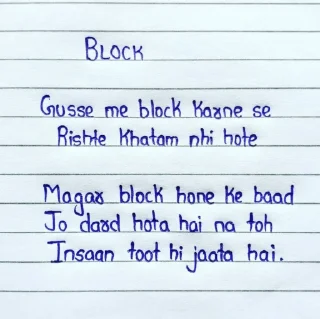 BLOCK
Gusse me block karne se
Rishte khatam nhi hote
Magar block hone ke baad
Jo dard hota hai na toh
Insaan toot hi jaata hai.